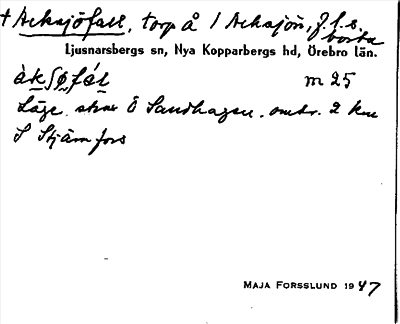 + Acksjöfall, torp å 1 Acksjön, f.l.s. borta
Ljusnarsbergs sn, Nya Kopparbergs hd, Örebro län.
àkʃøfál m 25
Läge. strax Ö Sandhagen. omkr. 2 km
S Stjärnfors
MAJA FORSSLUND 1947